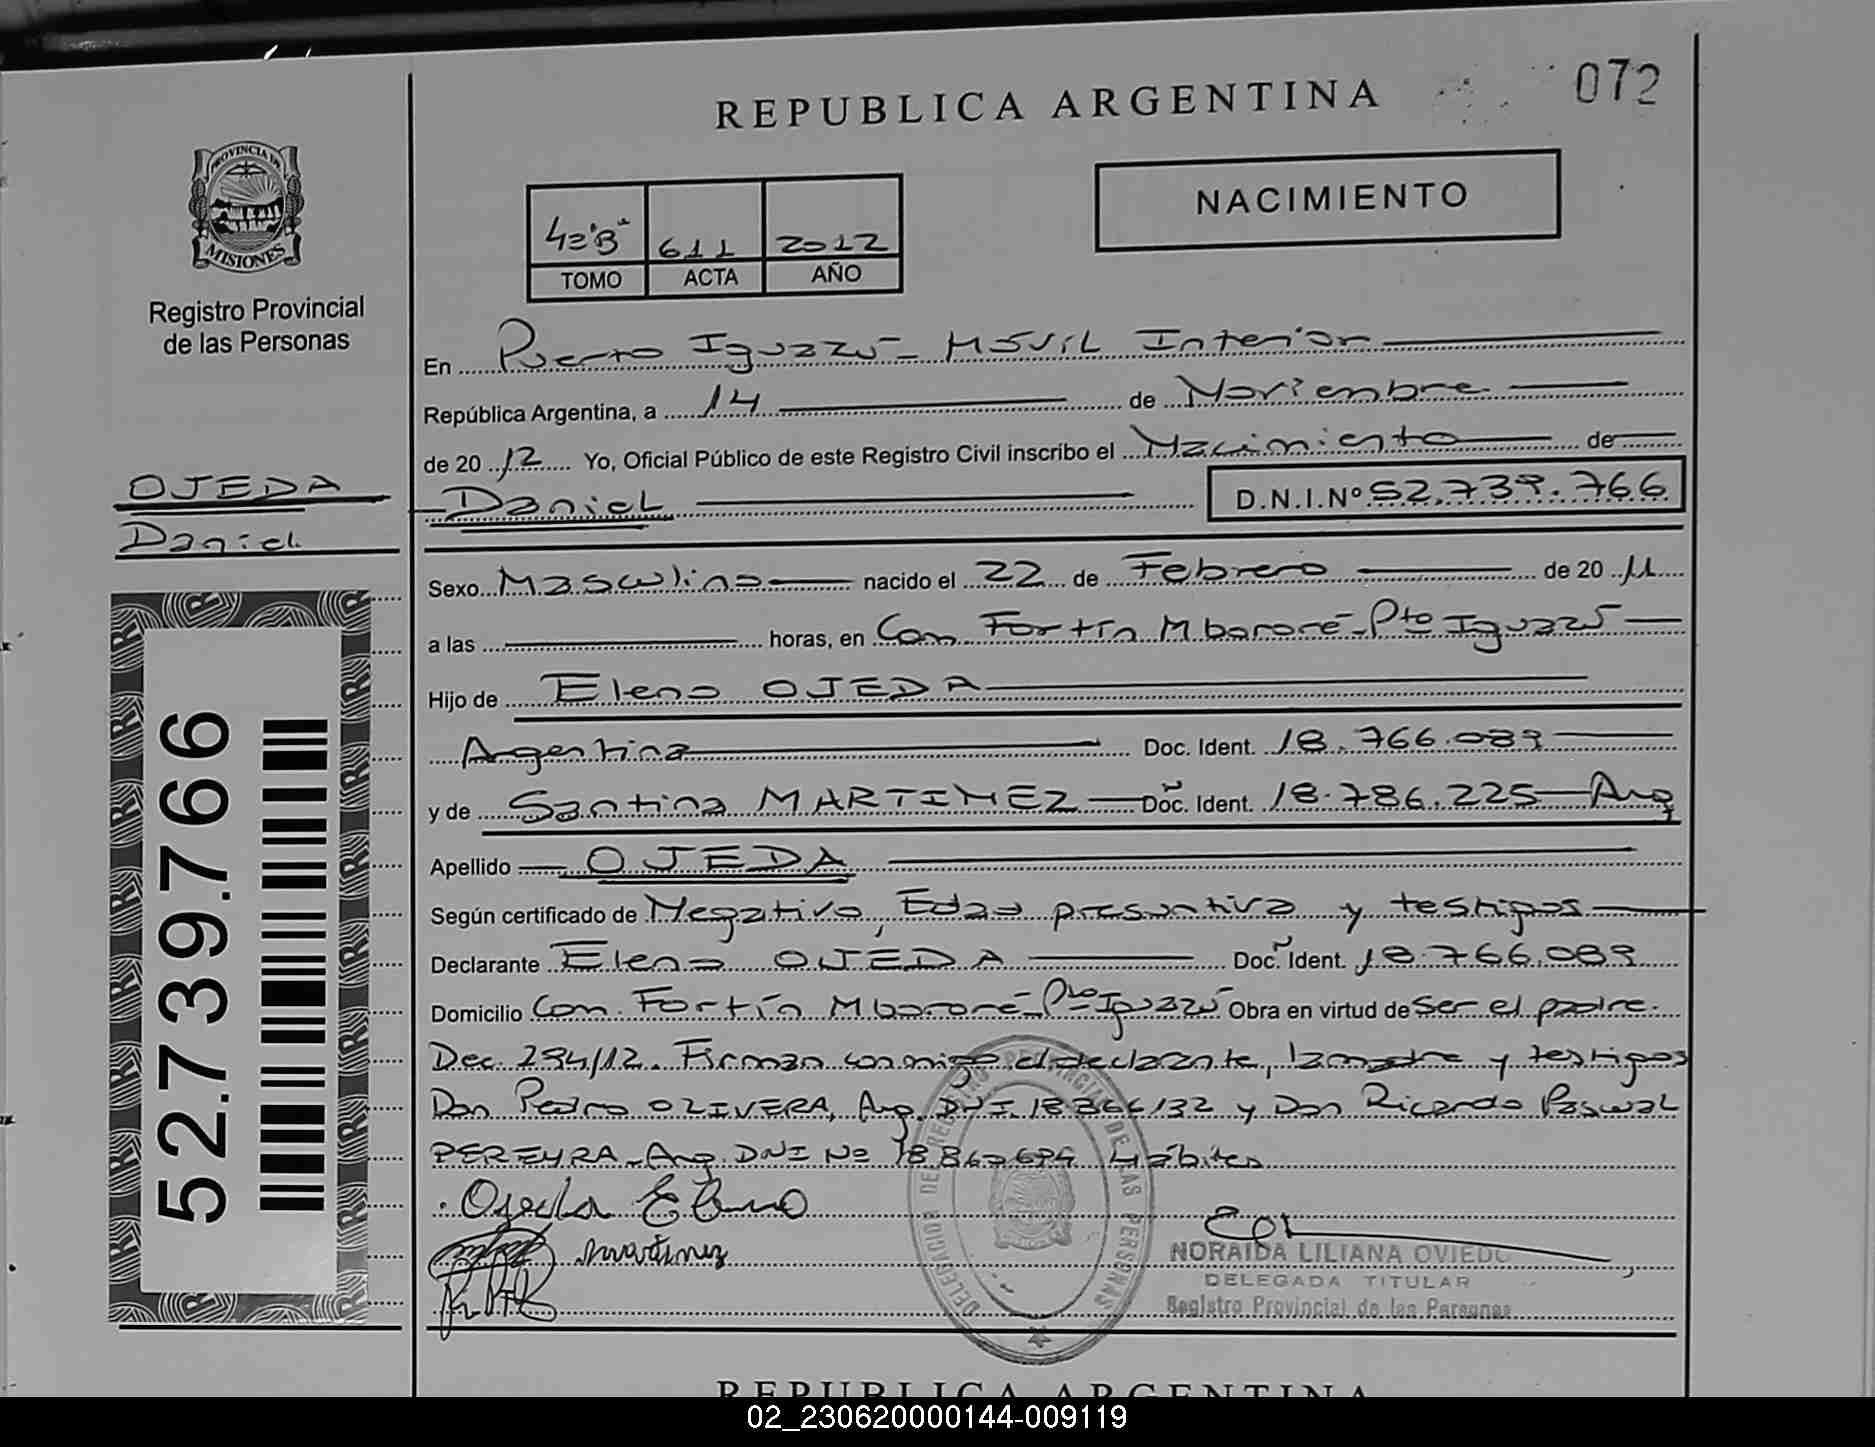 REPUBLICA ARGENTINA
072
PROVINCIA DE
MISIONES
Registro Provincial
de las Personas
NACIMIENTO
4º"B" 611 2012
TOMO ACTA AÑO
En Puerto Iguazú - Móvil Interior
República Argentina, a 14 de Noviembre
de 20 12 Yo, Oficial Público de este Registro Civil inscribo el Nacimiento de
OJEDA
Daniel
Daniel D.N.I.Nº 52.739.766
Sexo Masculino nacido el 22 de Febrero de 20 11
a las horas, en Com Fortín Mbororé - Pto Iguazú
Hijo de Eleno OJEDA
Argentina Doc. Ident. 18.766.089
y de Santina MARTINEZ Doc. Ident. 18.786.225 Arg
Apellido OJEDA
Según certificado de Negativo, Edad presuntiva y testigos
Declarante Eleno OJEDA Doc. Ident. 18.766.089
Domicilio Com. Fortín Mbororé - Pto Iguazú Obra en virtud de ser el padre.
Dec. 294/12. Firman conmigo el declarante, la madre y testigos
Don Pedro OLIVERA, Arg. DNI. 18866132 y Don Ricardo Pascual
PEREYRA - Arg. DNI Nº Hábiles
52.739.766
Ojeda Eleno
martinez
DELEGACION DEL REGISTRO PROVINCIAL DE LAS PERSONAS
NORAIDA LILIANA OVIEDO
DELEGADA TITULAR
Registro Provincial de las Personas
REPUBLICA ARGENTINA
02_230620000144-009119